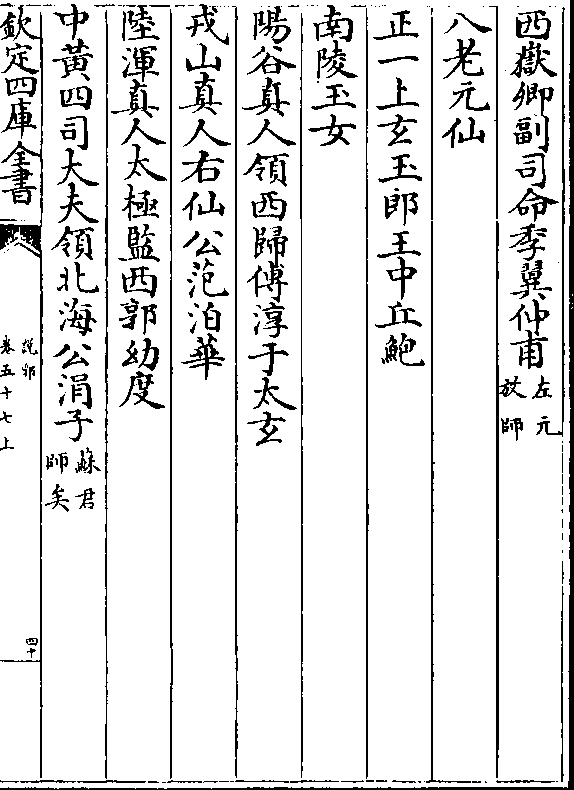 西嶽卿副司命季翼仲甫左元放師
八老元仙
正一上玄玉郎王中丘鮑
南陵玉女
陽谷真人領西歸傅淳于太玄
戎山真人右仙公范泊華
陸渾真人太極監西郭幼度
中黄四司大夫領北海公涓子蘇君師矣
欽定四庫全書
説郛
卷五十七上
四十